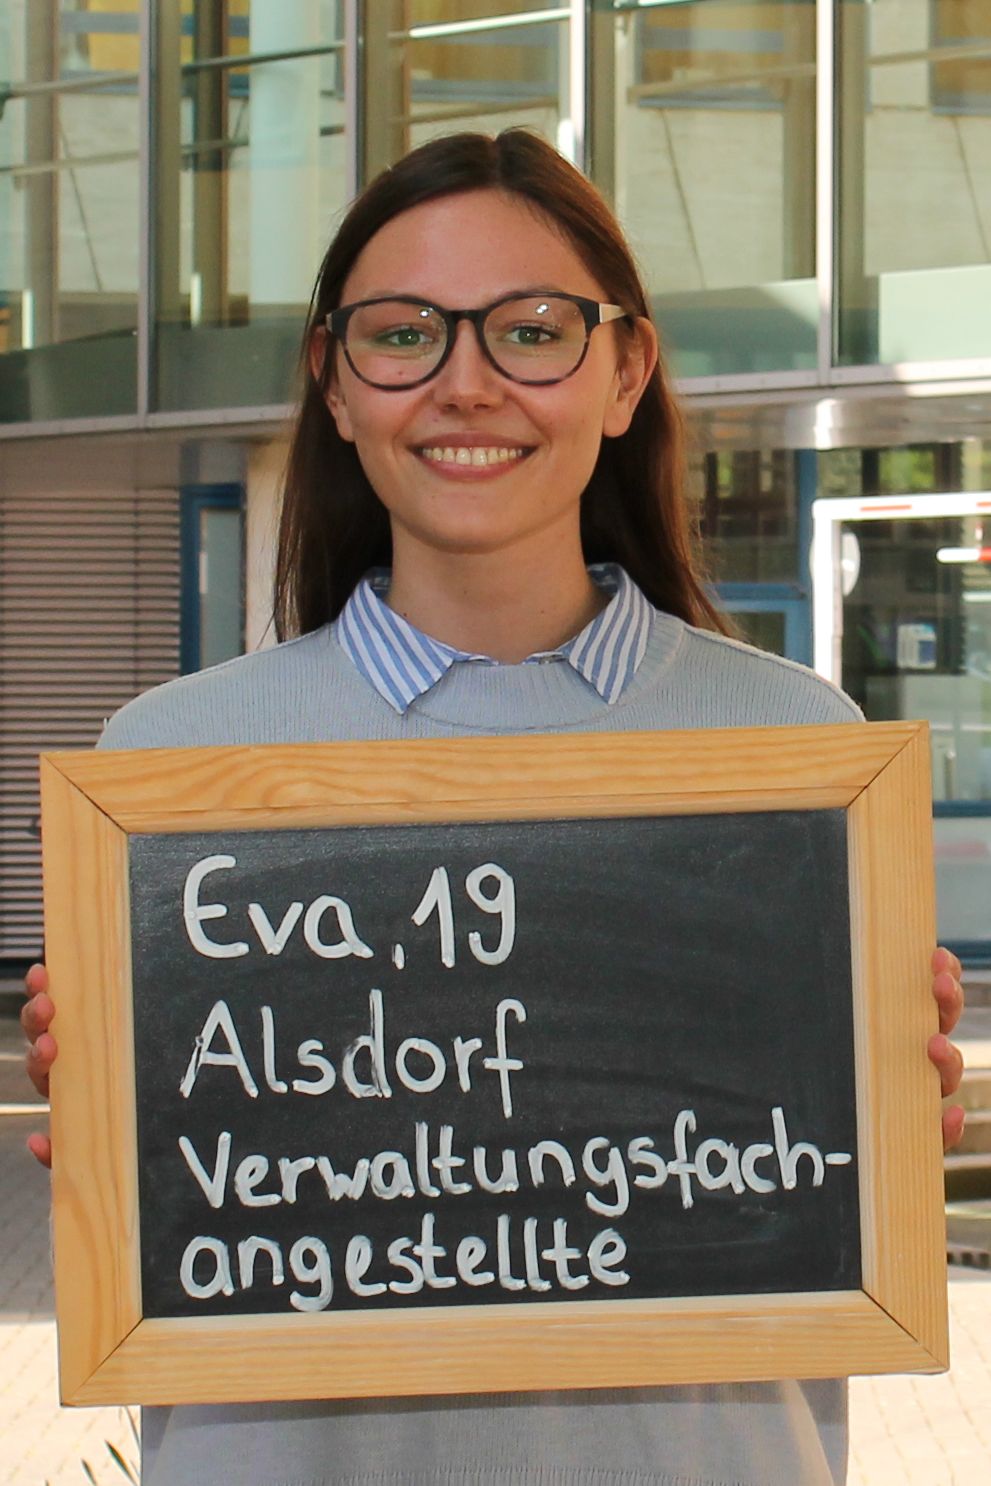 Eva, 19
Alsdorf
Verwaltungsfach-
angestellte